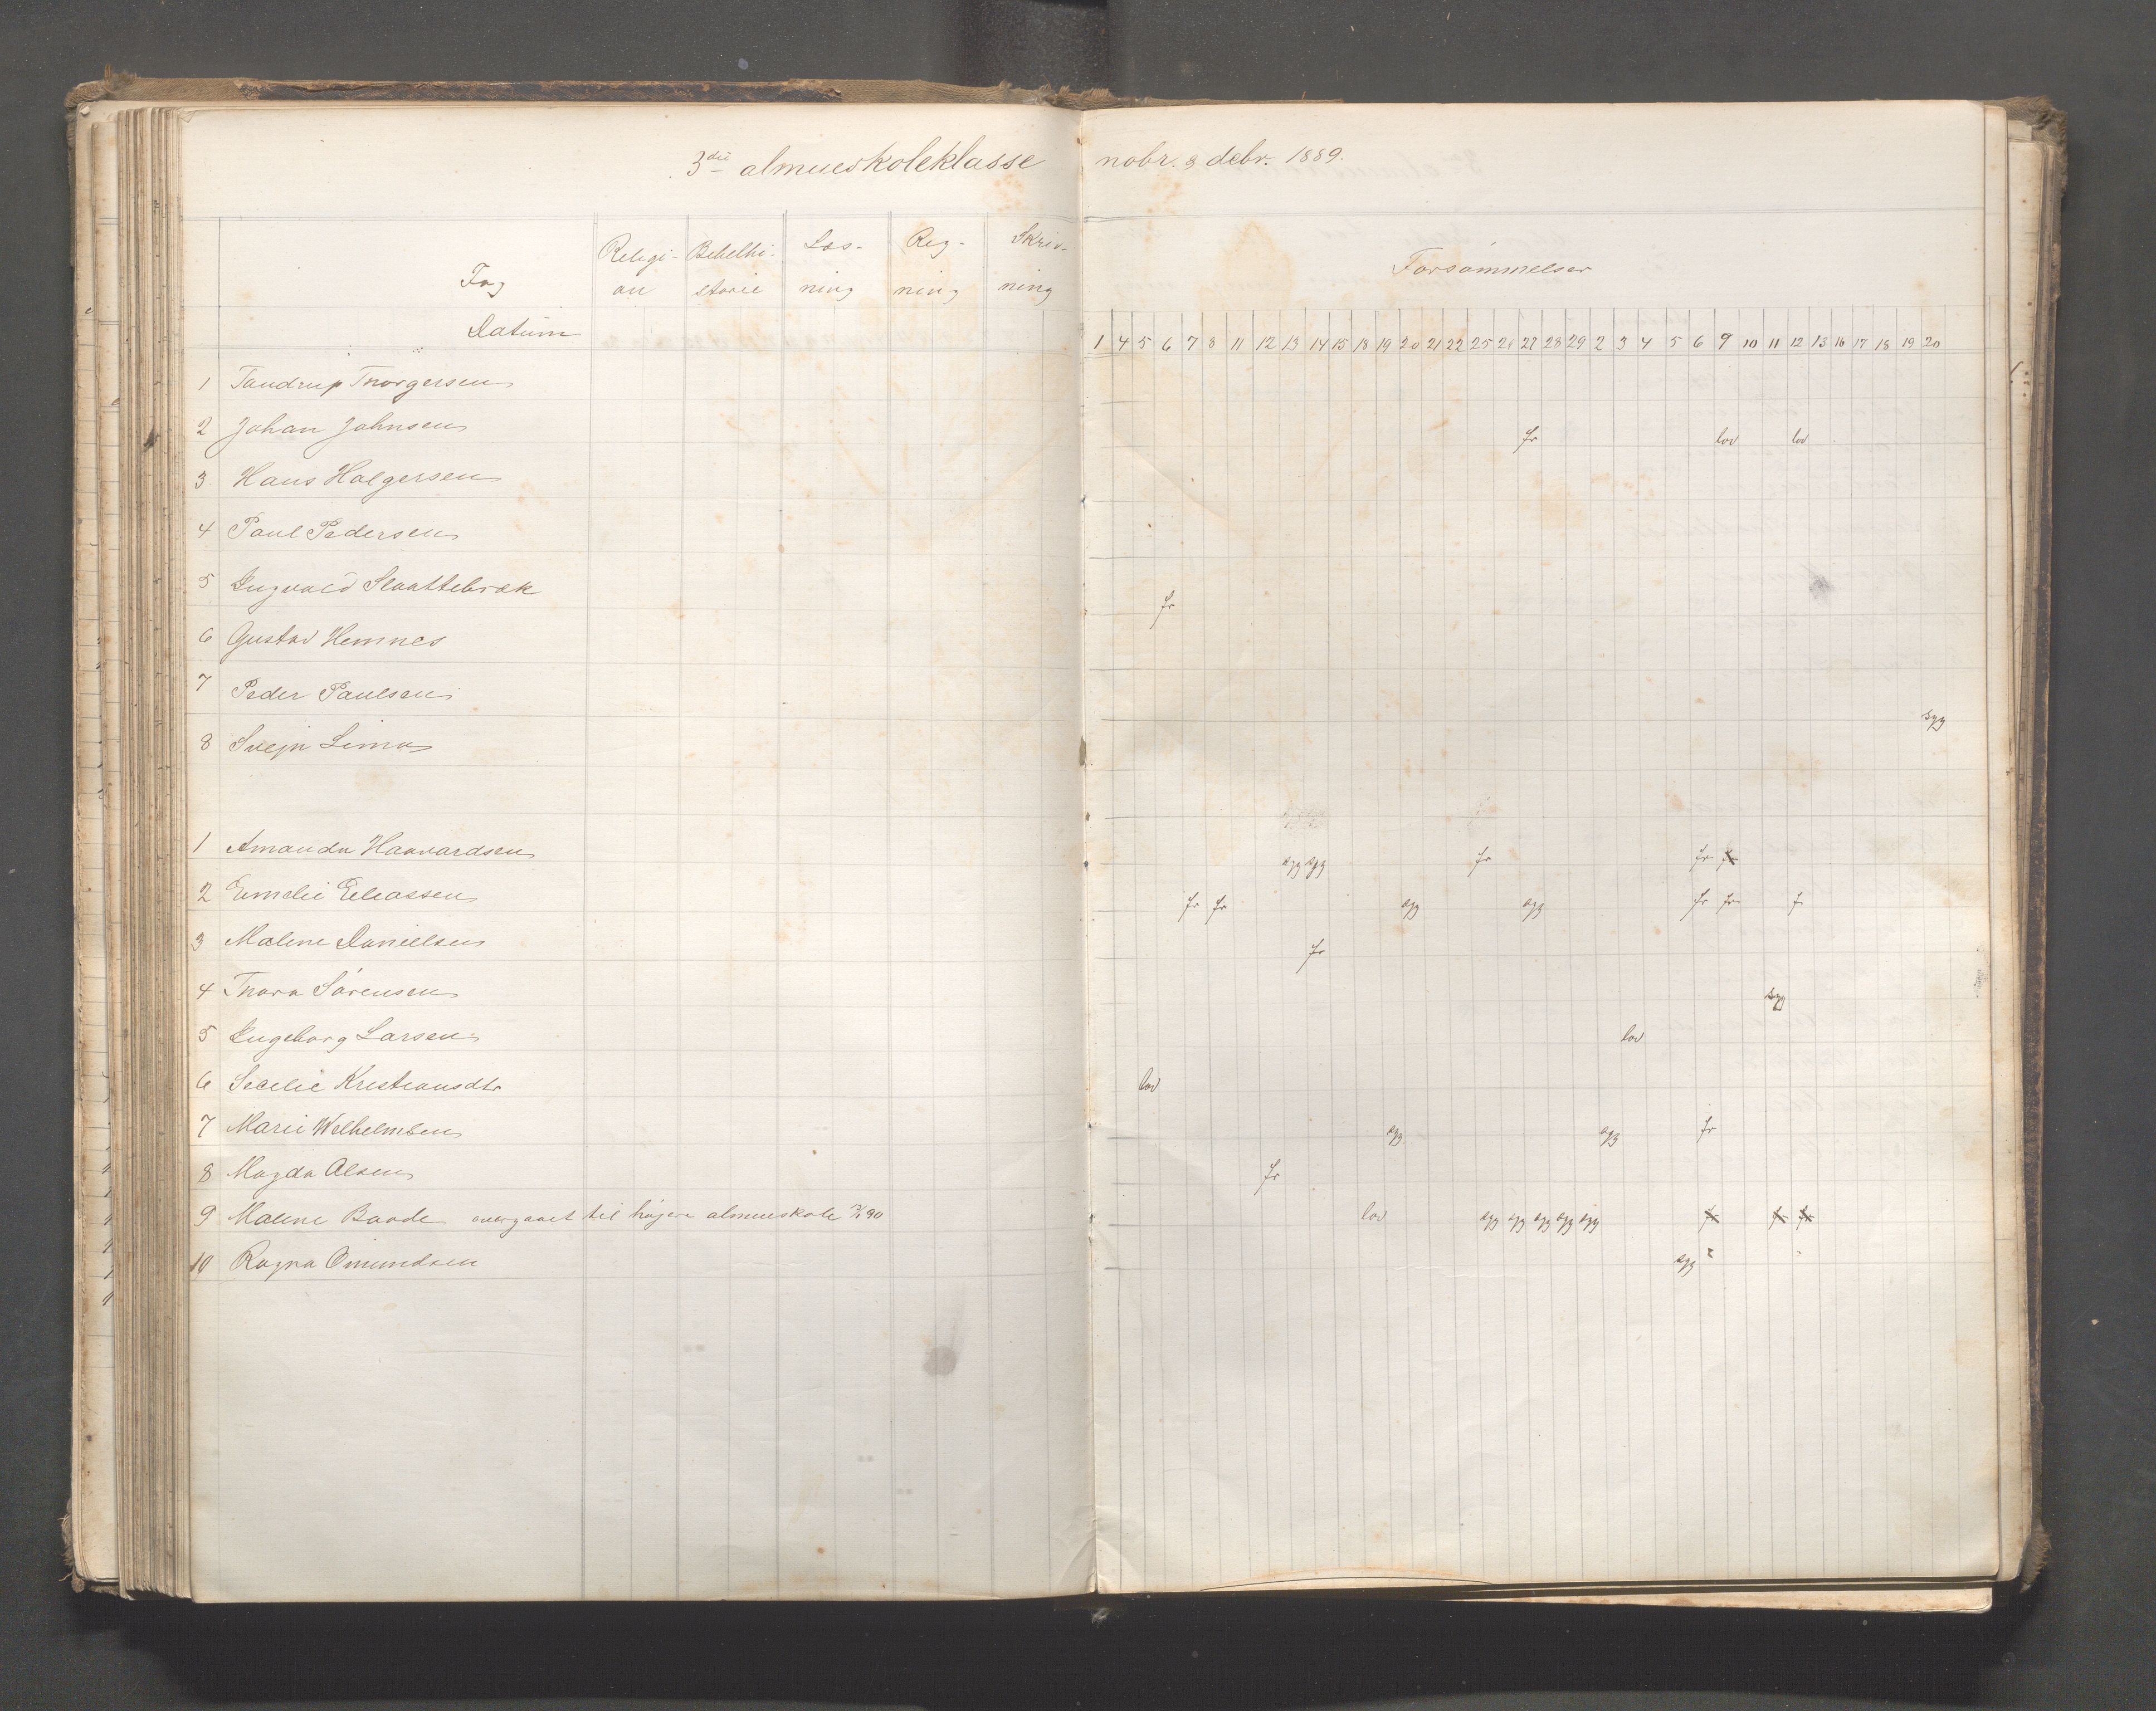 3die almueskoleklasse nobr. & debr. 1889.
Fag Religi- Bibelhi- Læs- Reg- Skriv- Forsømmelser
on storie ning ning ning
Datum 1 4 5 6 7 8 11 12 13 14 15 18 19 20 21 22 25 26 27 28 29 2 3 4 5 6 9 10 11 12 13 16 17 18 19 20
1 Tandrup Thorgersen
2 Johan Johnsen fr lov lov
3 Hans Holgersen
4 Paul Pedersen
5 Ingvald Slaattebræk fr
6 Gustav Hemnes
7 Peder Paulsen
8 Svejn Lima syg
1 Amanda Haavardsen syg syg fr fr fr
2 Emelie Eliassen fr fr syg syg fr fr fr
3 Malene Danielsen fr
4 Thora Sørensen syg
5 Ingeborg Larsen lov
6 Secelie Kristiansdtr lov
7 Marie Wilhelmsen syg syg fr
8 Magda Olsen fr
9 Malene Baade overgaaet til højere almueskole 90 lov syg syg syg syg syg fr fr fr
10 Ragna Omundsen syg